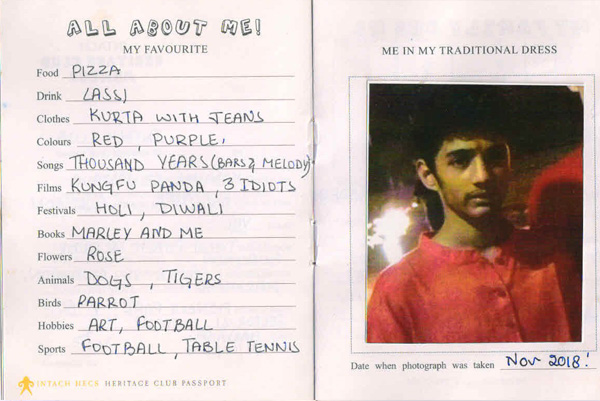 ALL ABOUT ME!
MY FAVOURITE
Food PIZZA
Drink LASSI
Clothes KURTA WITH JEANS
Colours RED, PURPLE,
Songs THOUSAND YEARS (BARS & MELODY)
Films KUNGFU PANDA, 3 IDIOTS
Festivals HOLI, DIWALI
Books MARLEY AND ME
Flowers ROSE
Animals DOGS, TIGERS
Birds PARROT
Hobbies ART, FOOTBALL
Sports FOOTBALL, TABLE TENNIS
INTACH HECS HERITAGE CLUB PASSPORT
ME IN MY TRADITIONAL DRESS
Date when photograph was taken Nov 2018!